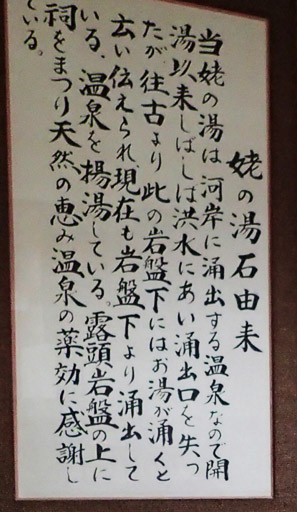 姥の湯石由来
当姥の湯は河岸に涌出する温泉なので開
湯以来しばしば洪水にあい涌出口を失っ
たが、往古より此の岩盤下にはお湯が涌くと
云い伝えられ、現在も岩盤下より涌出して
いる、温泉を揚湯している。露頭岩盤の上に
祠をまつり天然の恵み温泉の薬効に感謝し
ている。